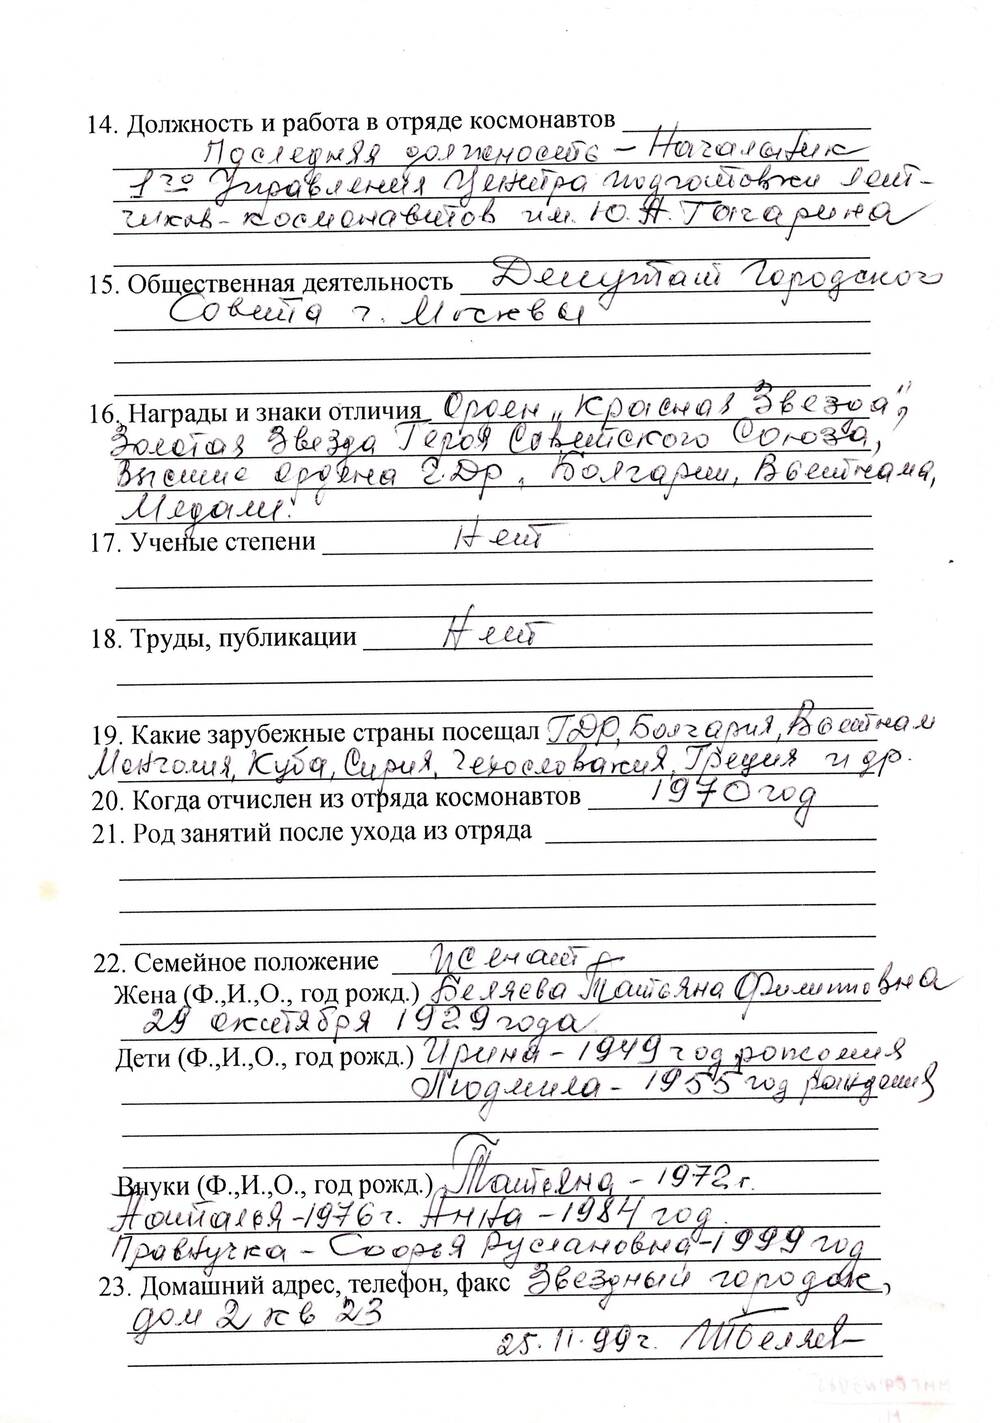 14. Должность и работа в отряде космонавтов
Последняя должность – Начальник
1го Управления Центра подготовки лёт-
чиков-космонавтов им. Ю. А. Гагарина
15. Общественная деятельность Депутат Городского
Совета г. Москвы
16. Награды и знаки отличия Орден „Красная Звезда",
Золотая Звезда Героя Советского Союза,
Высшие ордена Г.Др, Болгарии, Вьетнама,
Медали.
17. Ученые степени Нет
18. Труды, публикации Нет
19. Какие зарубежные страны посещал ГДР, Болгария, Вьетнам
Монголия, Куба, Сирия, Чехословакия, Греция и др.
20. Когда отчислен из отряда космонавтов 1970 год
21. Род занятий после ухода из отряда
22. Семейное положение женат
Жена (Ф.,И.,О., год рожд.) Беляева Татьяна Филипповна
29 октября 1929 года
Дети (Ф.,И.,О., год рожд.) Ирина – 1949 год рождения
Людмила – 1955 год рождения
Внуки (Ф.,И.,О., год рожд.) Татьяна – 1972 г.
Наталья – 1976 г. Анна – 1984 год
Правнучка – Софья Руслановна – 1999 год
23. Домашний адрес, телефон, факс Звездный городок,
дом 2 кв 23
25.11.99 г. ТБеляев